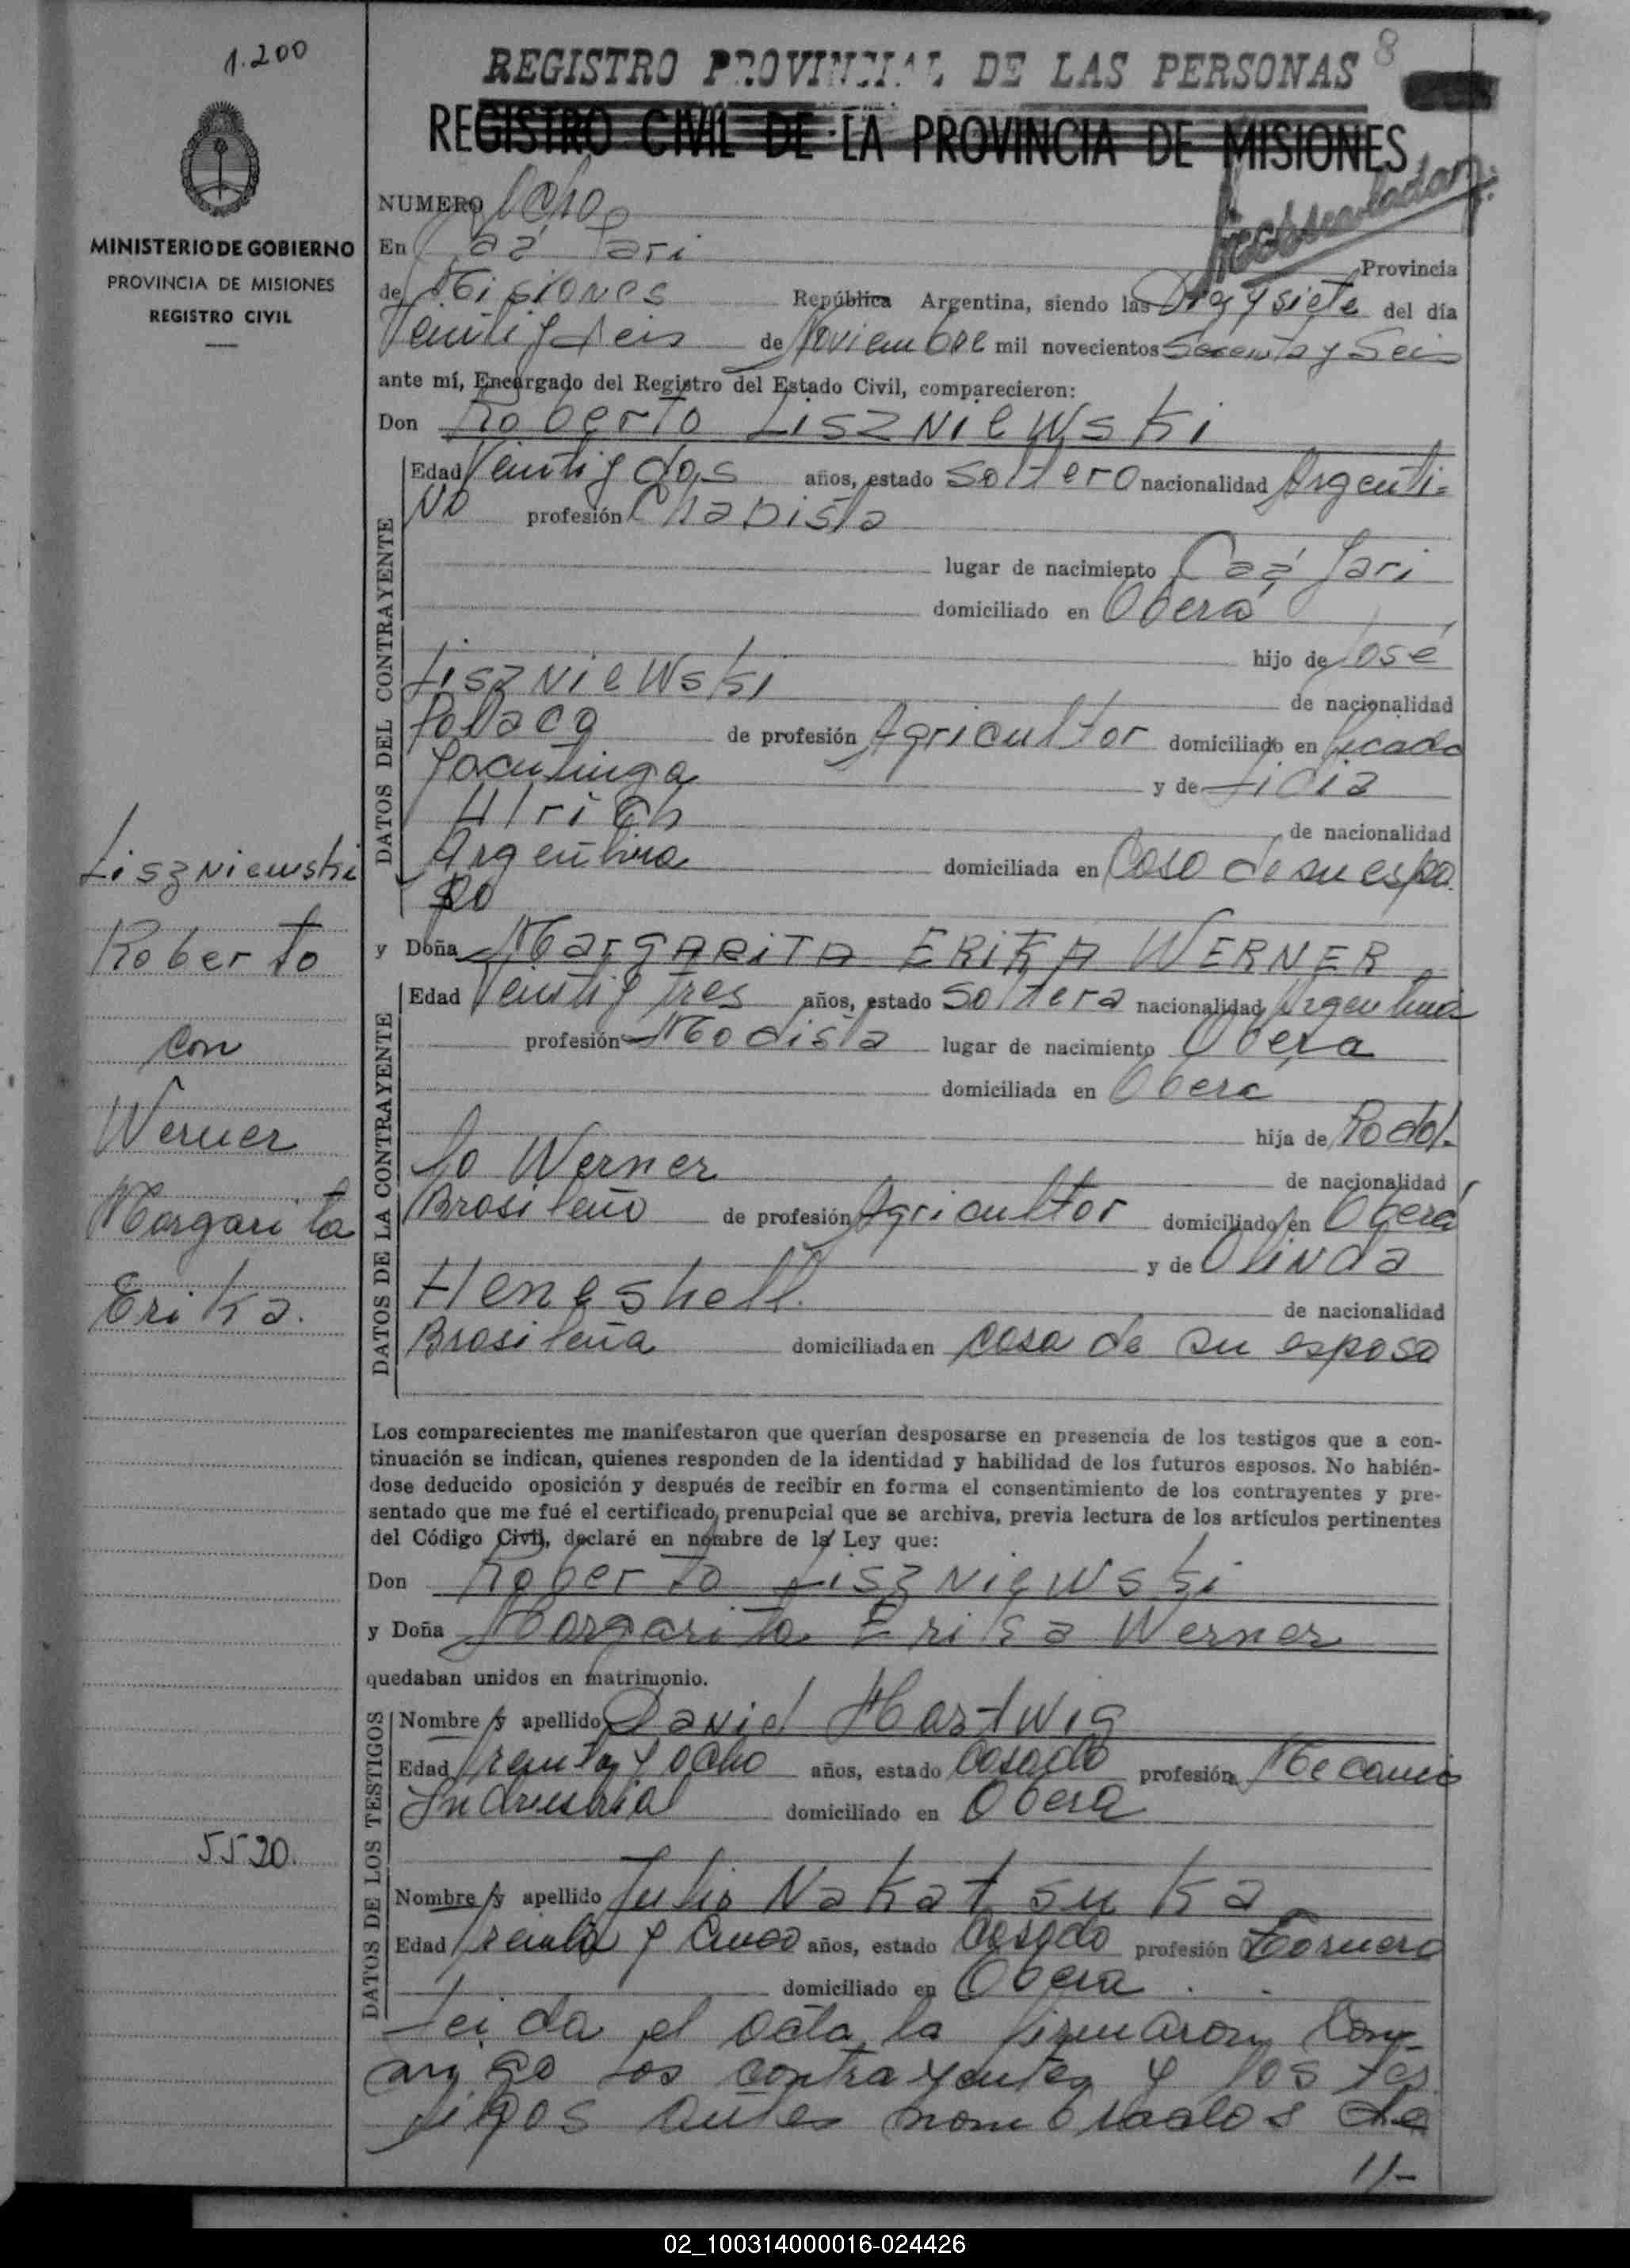 1.200
8
REGISTRO PROVINCIAL DE LAS PERSONAS
REGISTRO CIVIL DE LA PROVINCIA DE MISIONES
MINISTERIO DE GOBIERNO
PROVINCIA DE MISIONES
REGISTRO CIVIL
NUMERO Ocho
En Caá Yari
Provincia
de Misiones República Argentina, siendo las Diez y siete del día
Veinti y seis de Noviembre mil novecientos Sesenta y Seis
ante mí, Encargado del Registro del Estado Civil, comparecieron:
Don Roberto Liszniewski
DATOS DEL CONTRAYENTE
Edad Veinti y dos años, estado Soltero nacionalidad Argenti=
no profesión Chapista
lugar de nacimiento Caá Yari
domiciliado en Oberá
hijo de José
Liszniewski
de nacionalidad
Polaca de profesión Agricultor domiciliado en Picada
Yacutinga y de Licia
Ulrich de nacionalidad
Argentina domiciliada en Casa de su espo
so
y Doña MARGARITA ERIKA WERNER
DATOS DE LA CONTRAYENTE
Edad Veinti y tres años, estado Soltera nacionalidad Argentina
profesión Modista lugar de nacimiento Oberá
domiciliada en Oberá
hija de Rodol-
fo Werner
de nacionalidad
Brasileño de profesión Agricultor domiciliado en Oberá
y de Olinda
Heneshell. de nacionalidad
Brasileña domiciliada en casa de su esposo
Liszniewski
Roberto
con
Werner
Margarita
Erika.
Los comparecientes me manifestaron que querían desposarse en presencia de los testigos que a con-
tinuación se indican, quienes responden de la identidad y habilidad de los futuros esposos. No habién-
dose deducido oposición y después de recibir en forma el consentimiento de los contrayentes y pre-
sentado que me fué el certificado prenupcial que se archiva, previa lectura de los artículos pertinentes
del Código Civil, declaré en nombre de la Ley que:
Don Roberto Liszniewski
y Doña Margarita Erika Werner
quedaban unidos en matrimonio.
DATOS DE LOS TESTIGOS
Nombre y apellido David Hartwig
Edad treinta y ocho años, estado Casado profesión Mecanico
Industrial domiciliado en Oberá
5520.
Nombre y apellido Julio Nakatsuka
Edad treinta y cinco años, estado Casado profesión Tornero
domiciliado en Oberá
Leida el acta, la firmaron con-
migo los contrayentes y los tes
tigos antes nombrados de
//-
02_100314000016-024426